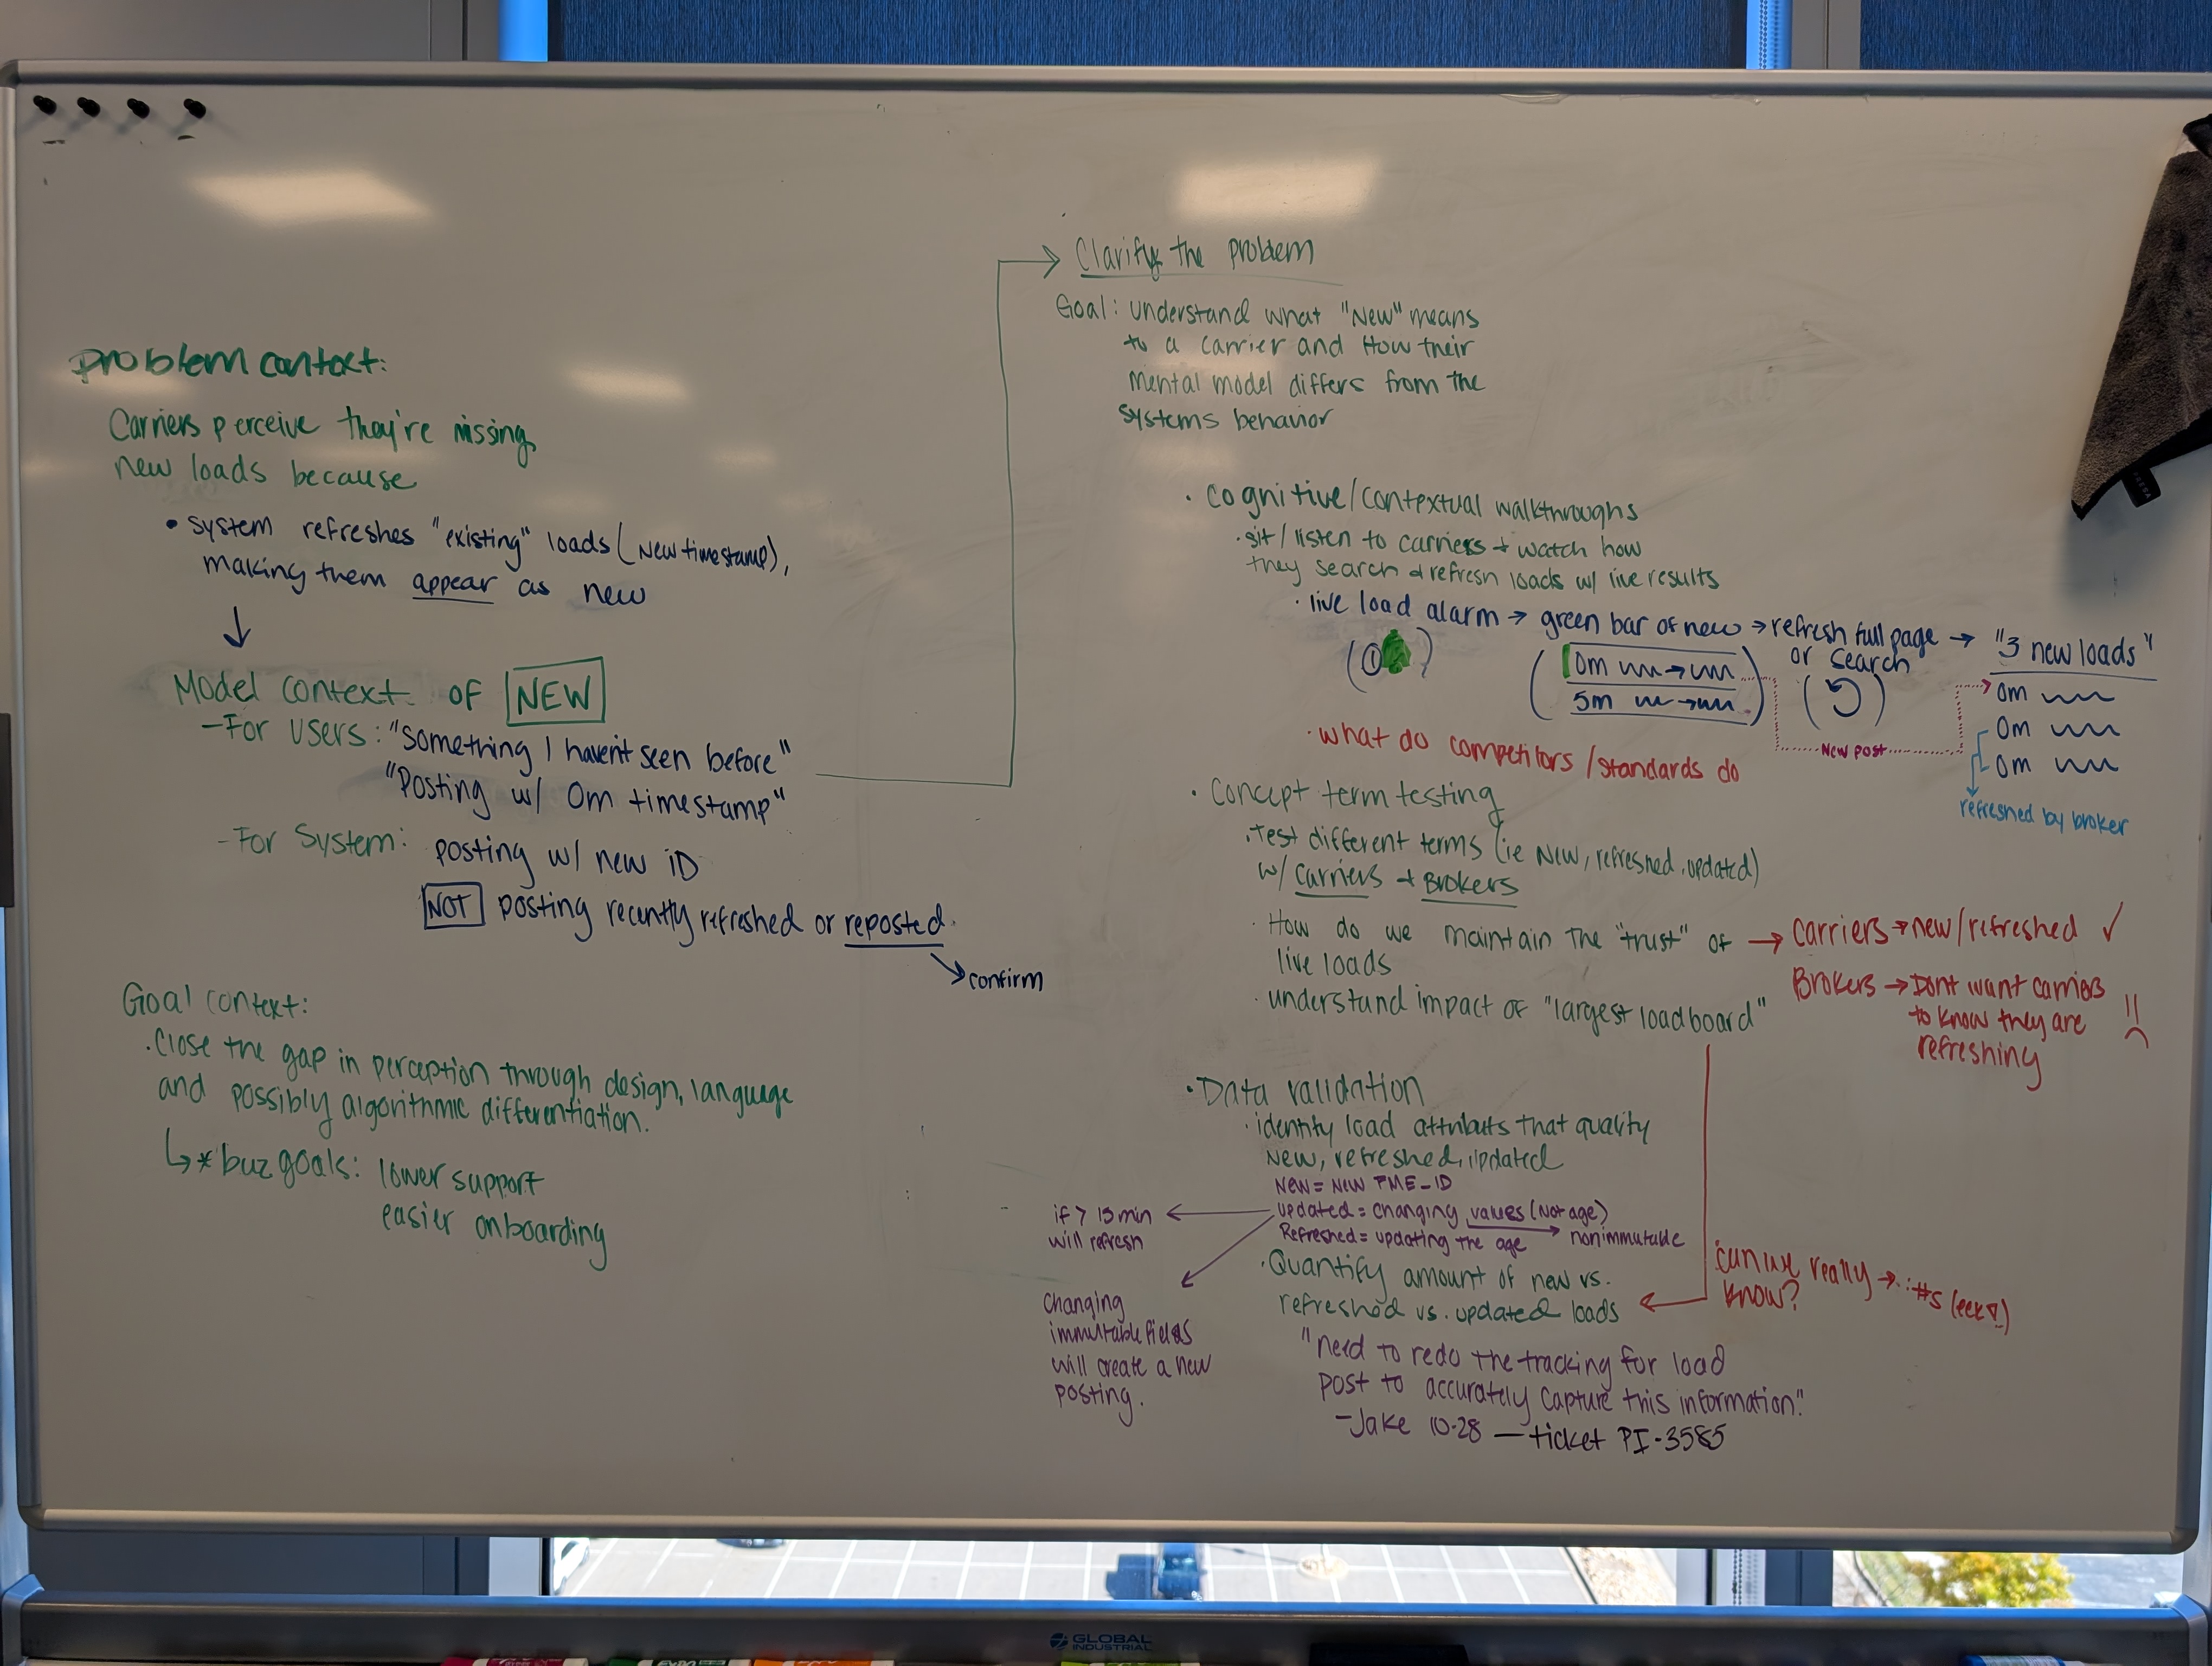 Problem context:
Carriers perceive they're missing
new loads because
• System refreshes "existing" loads (New timestamp),
making them appear as new
Model context of NEW
- For Users: "Something I haven't seen before"
"Posting w/ 0m timestamp"
- For System: posting w/ new ID
NOT posting recently refreshed or reposted.
confirm
Goal context:
· Close the gap in perception through design, language
and possibly algorithmic differentiation.
↳ * buz goals: lower support
easier onboarding
Clarify the problem
Goal: understand what "New" means
to a carrier and How their
mental model differs from the
systems behavior
· Cognitive/contextual walkthroughs
· sit/listen to carriers + watch how
they search & refresh loads w/ live results
· live load alarm → green bar of new → refresh full page → "3 new loads"
or search
0m
5m
0m
0m
0m
New post
refreshed by broker
· what do competitors/standards do
· Concept term testing
· Test different terms (ie New, refreshed, updated)
w/ Carriers + Brokers
· How do we maintain the "trust" of → Carriers → new/refreshed ✓
live loads
Brokers → Dont want carriers
to know they are
refreshing !!
· understand impact of "largest loadboard"
· Data validation
· identify load attributs that quality
New, refreshed, updated
New = New PME_ID
updated = changing values (Not age)
Refreshed = updating the age → nonimmutable
if > 15 min
will refresh
Changing
immutable fields
will create a new
posting.
· Quantify amount of new vs.
refreshed vs. updated loads
can we really → #s
know?
"need to redo the tracking for load
post to accurately capture this information."
- Jake 10-28 — ticket PI-3585
GLOBAL
INDUSTRIAL